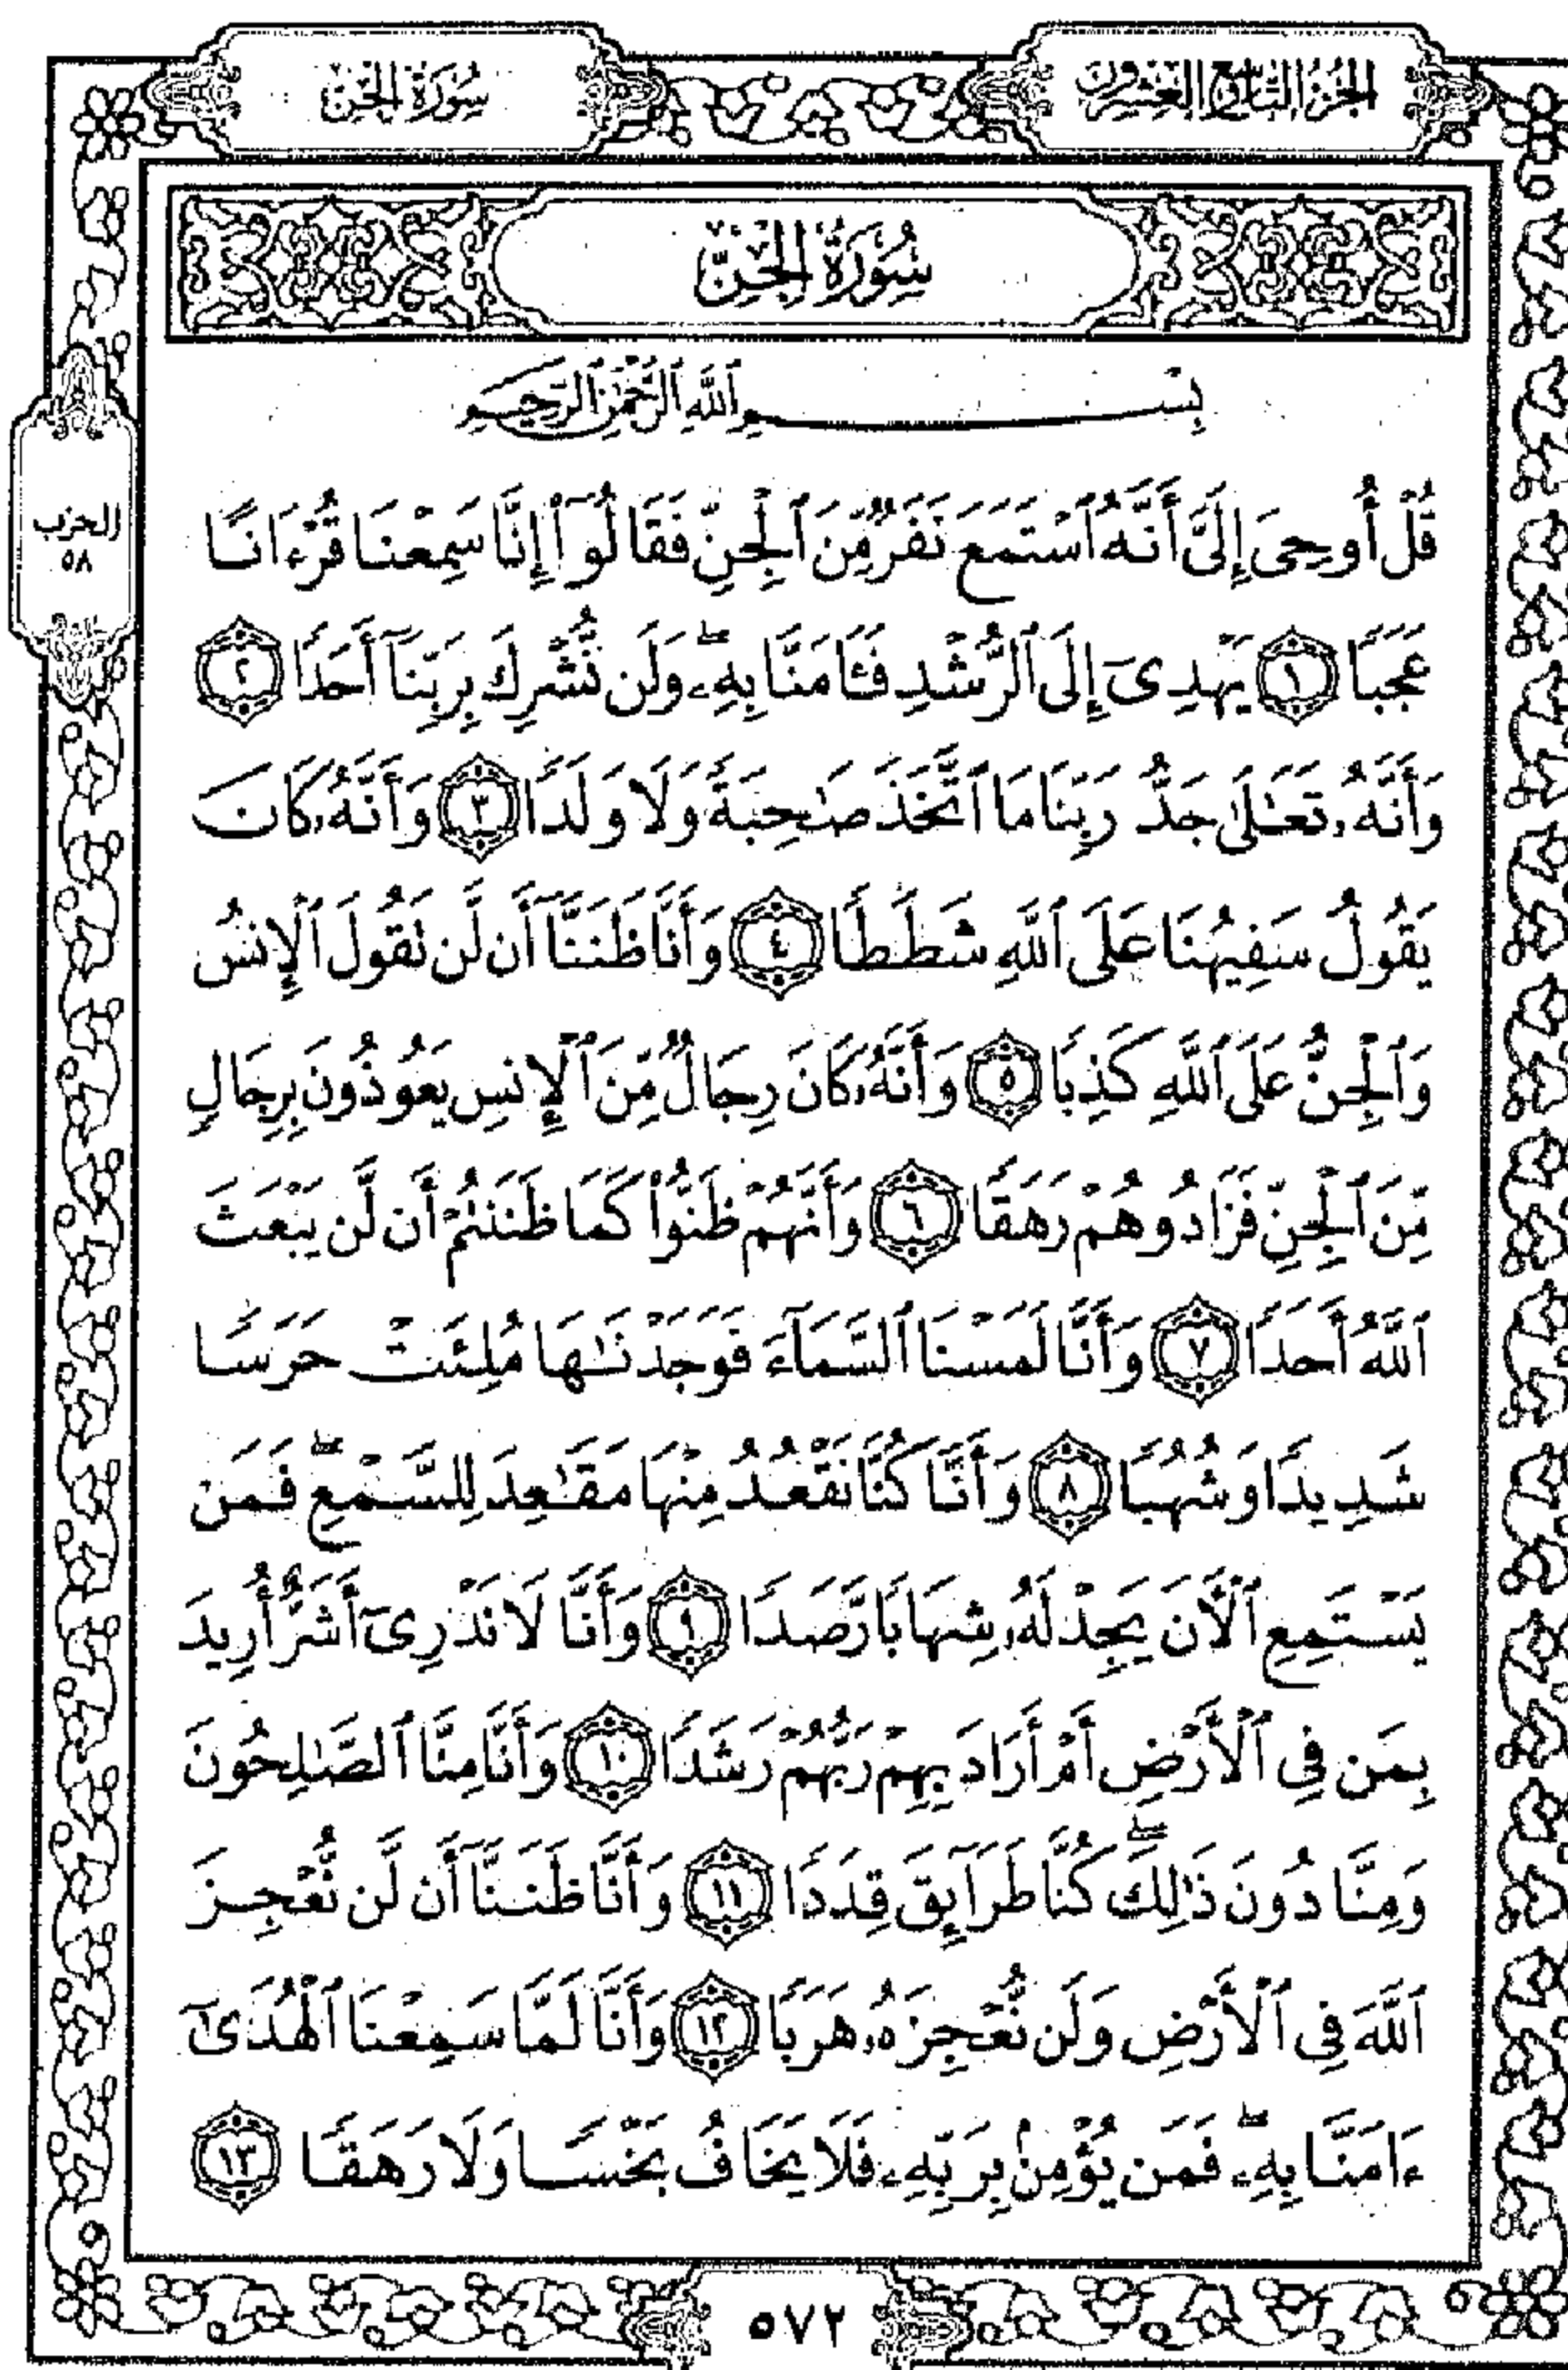 الجزء التاسع والعشرون
سورة الجن
سُورَةُ الْجِنِّ
بِسْمِ ٱللَّهِ ٱلرَّحْمَٰنِ ٱلرَّحِيمِ
قُلْ أُوحِىَ إِلَىَّ أَنَّهُ ٱسْتَمَعَ نَفَرٌ مِّنَ ٱلْجِنِّ فَقَالُوٓا۟ إِنَّا سَمِعْنَا قُرْءَانًا
عَجَبًا ١ يَهْدِىٓ إِلَى ٱلرُّشْدِ فَـَٔامَنَّا بِهِۦ ۖ وَلَن نُّشْرِكَ بِرَبِّنَآ أَحَدًا ٢
وَأَنَّهُۥ تَعَٰلَىٰ جَدُّ رَبِّنَا مَا ٱتَّخَذَ صَٰحِبَةً وَلَا وَلَدًا ٣ وَأَنَّهُۥ كَانَ
يَقُولُ سَفِيهُنَا عَلَى ٱللَّهِ شَطَطًا ٤ وَأَنَّا ظَنَنَّآ أَن لَّن نَقُولَ ٱلْإِنسُ
وَٱلْجِنُّ عَلَى ٱللَّهِ كَذِبًا ٥ وَأَنَّهُۥ كَانَ رِجَالٌ مِّنَ ٱلْإِنسِ يَعُوذُونَ بِرِجَالٍ
مِّنَ ٱلْجِنِّ فَزَادُوهُمْ رَهَقًا ٦ وَأَنَّهُمْ ظَنُّوا۟ كَمَا ظَنَنتُمْ أَن لَّن يَبْعَثَ
ٱللَّهُ أَحَدًا ٧ وَأَنَّا لَمَسْنَا ٱلسَّمَآءَ فَوَجَدْنَٰهَا مُلِئَتْ حَرَسًا
شَدِيدًا وَشُهُبًا ٨ وَأَنَّا كُنَّا نَقْعُدُ مِنْهَا مَقَٰعِدَ لِلسَّمْعِ ۖ فَمَن
يَسْتَمِعِ ٱلْـَٔانَ يَجِدْ لَهُۥ شِهَابًا رَّصَدًا ٩ وَأَنَّا لَا نَدْرِىٓ أَشَرٌّ أُرِيدَ
بِمَن فِى ٱلْأَرْضِ أَمْ أَرَادَ بِهِمْ رَبُّهُمْ رَشَدًا ١٠ وَأَنَّا مِنَّا ٱلصَّٰلِحُونَ
وَمِنَّا دُونَ ذَٰلِكَ ۖ كُنَّا طَرَآئِقَ قِدَدًا ١١ وَأَنَّا ظَنَنَّآ أَن لَّن نُّعْجِزَ
ٱللَّهَ فِى ٱلْأَرْضِ وَلَن نُّعْجِزَهُۥ هَرَبًا ١٢ وَأَنَّا لَمَّا سَمِعْنَا ٱلْهُدَىٰٓ
ءَامَنَّا بِهِۦ ۖ فَمَن يُؤْمِنۢ بِرَبِّهِۦ فَلَا يَخَافُ بَخْسًا وَلَا رَهَقًا ١٣
الحزب
٥٨
٥٧٢